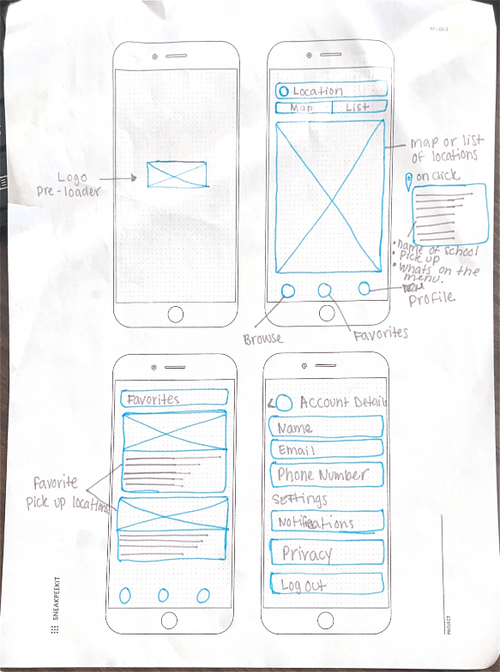 MOBILE
Logo
Pre-loader
Location
Map
List
map or list
of locations
on click
• name of school
• Pick up
• Whats on the
menu.
Profile
Browse
Favorites
Favorites
Favorite
pick up locations
Account Details
Name
Email
Phone Number
Settings
Notifications
Privacy
Log out
SNEAKPEEKIT
PROJECT